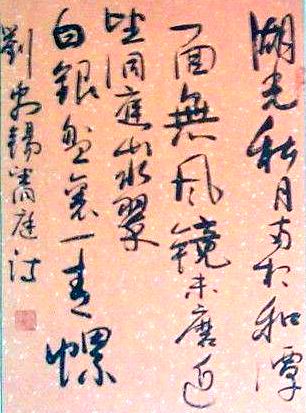 湖光秋月兩相和潭
面無風鏡未磨遙
望洞庭山水翠
白銀盤裏一青螺
劉禹錫庭詩